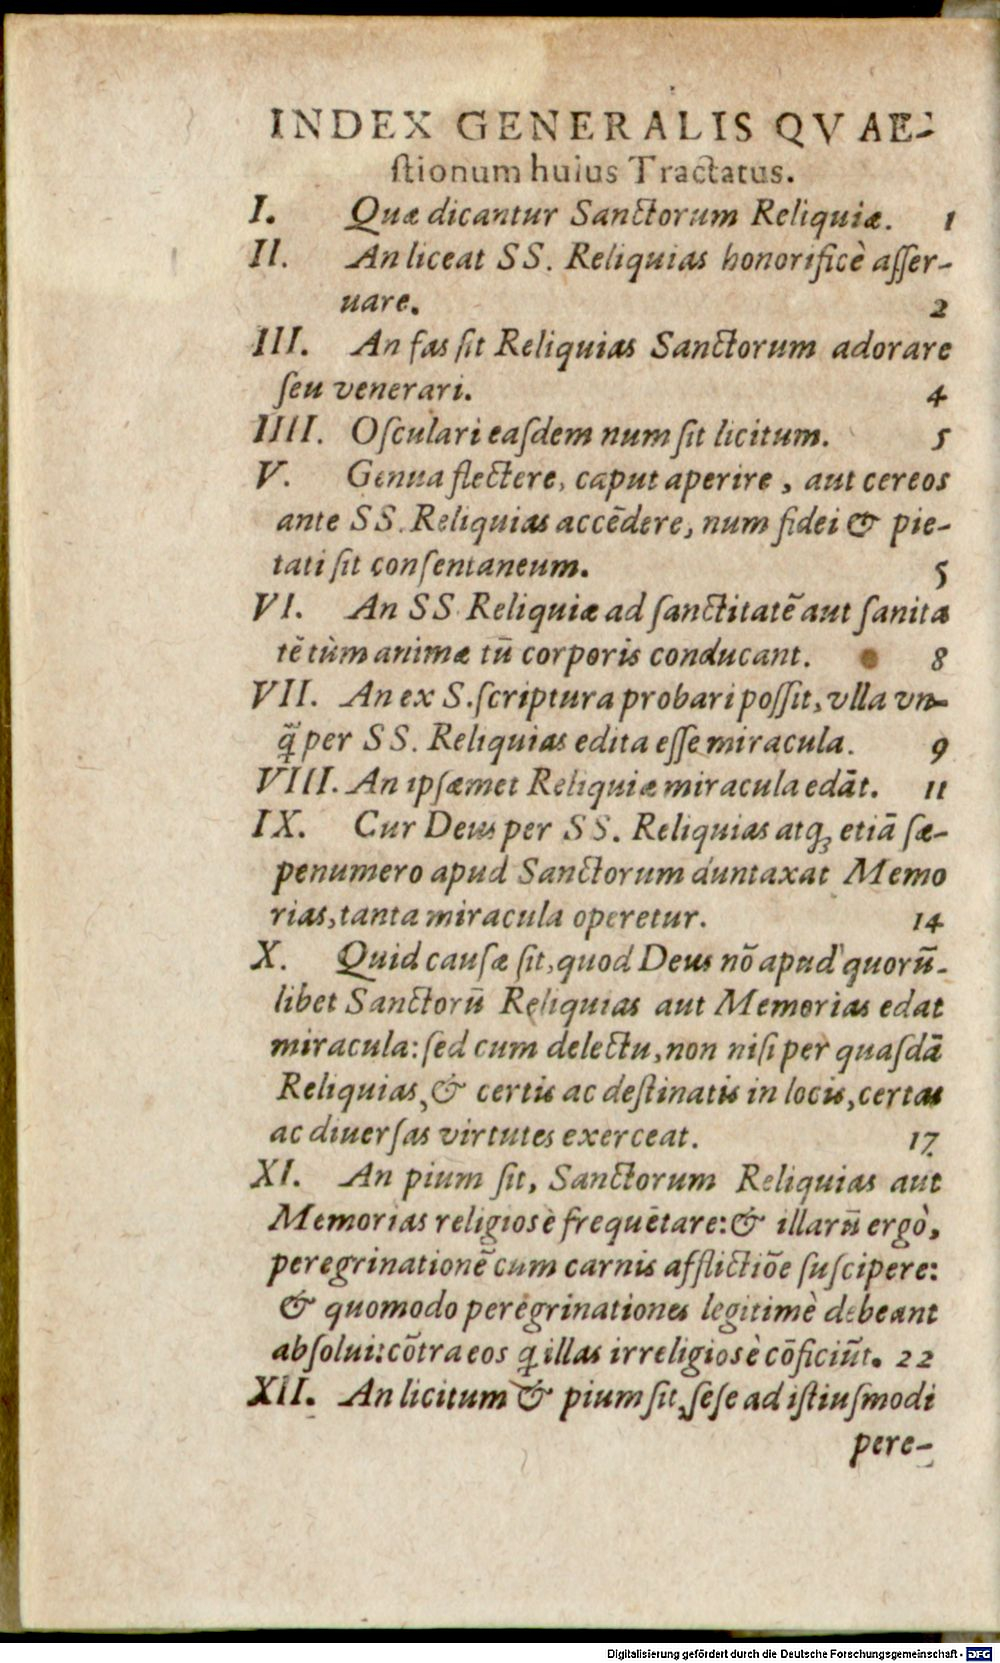 INDEX GENERALIS QVAE-
ſtionum huius Tractatus.
I. Quæ dicantur Sanctorum Reliquiæ. 1
II. An liceat SS. Reliquias honorificè aſſer-
uare. 2
III. An fas ſit Reliquias Sanctorum adorare
ſeu venerari. 4
IIII. Oſculari eaſdem num ſit licitum. 5
V. Genua flectere, caput aperire, aut cereos
ante SS. Reliquias accēdere, num fidei & pie-
tati ſit conſentaneum. 5
VI. An SS. Reliquiæ ad ſanctitatē aut ſanita
tē tùm animæ tū corporis conducant. 8
VII. An ex S. ſcriptura probari poſſit, vlla vn-
q̃ per SS. Reliquias edita eſſe miracula. 9
VIII. An ipſæmet Reliquiæ miracula edāt. 11
IX. Cur Deus per SS. Reliquias atq; etiā ſæ-
penumero apud Sanctorum duntaxat Memo
rias, tanta miracula operetur. 14
X. Quid cauſæ ſit, quod Deus nō apud quorū-
libet Sanctorū Reliquias aut Memorias edat
miracula: ſed cum delectu, non niſi per quaſdā
Reliquias, & certis ac deſtinatis in locis, certas
ac diuerſas virtutes exerceat. 17
XI. An pium ſit, Sanctorum Reliquias aut
Memorias religiosè frequētare: & illarū ergò,
peregrinationē cum carnis afflictiōe ſuſcipere:
& quomodo peregrinationes legitimè debeant
abſolui: cōtra eos q̃ illas irreligiosè cōficiūt. 22
XII. An licitum & pium ſit, ſeſe ad iſtiuſmodi
pere-
Digitalisierung gefördert durch die Deutsche Forschungsgemeinschaft - DFG